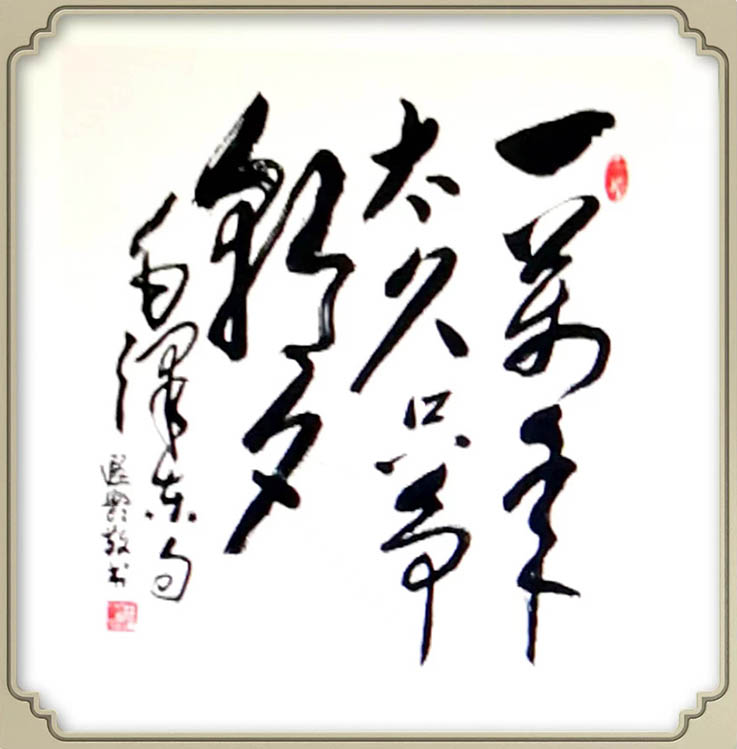 一萬年
太久只争
朝夕
毛澤东句
敬书